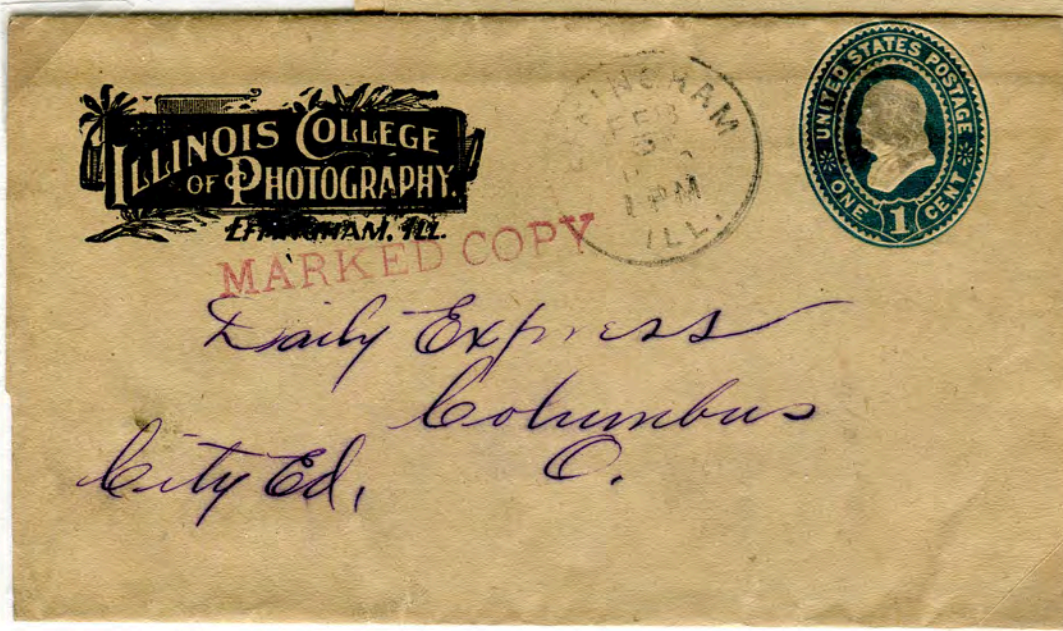 ILLINOIS COLLEGE
OF PHOTOGRAPHY.
EFFINGHAM, ILL.
FEB
1 PM
ILL.
UNITED STATES POSTAGE
ONE 1 CENT
MARKED COPY
Daily Express
Columbus
O.
City Ed.